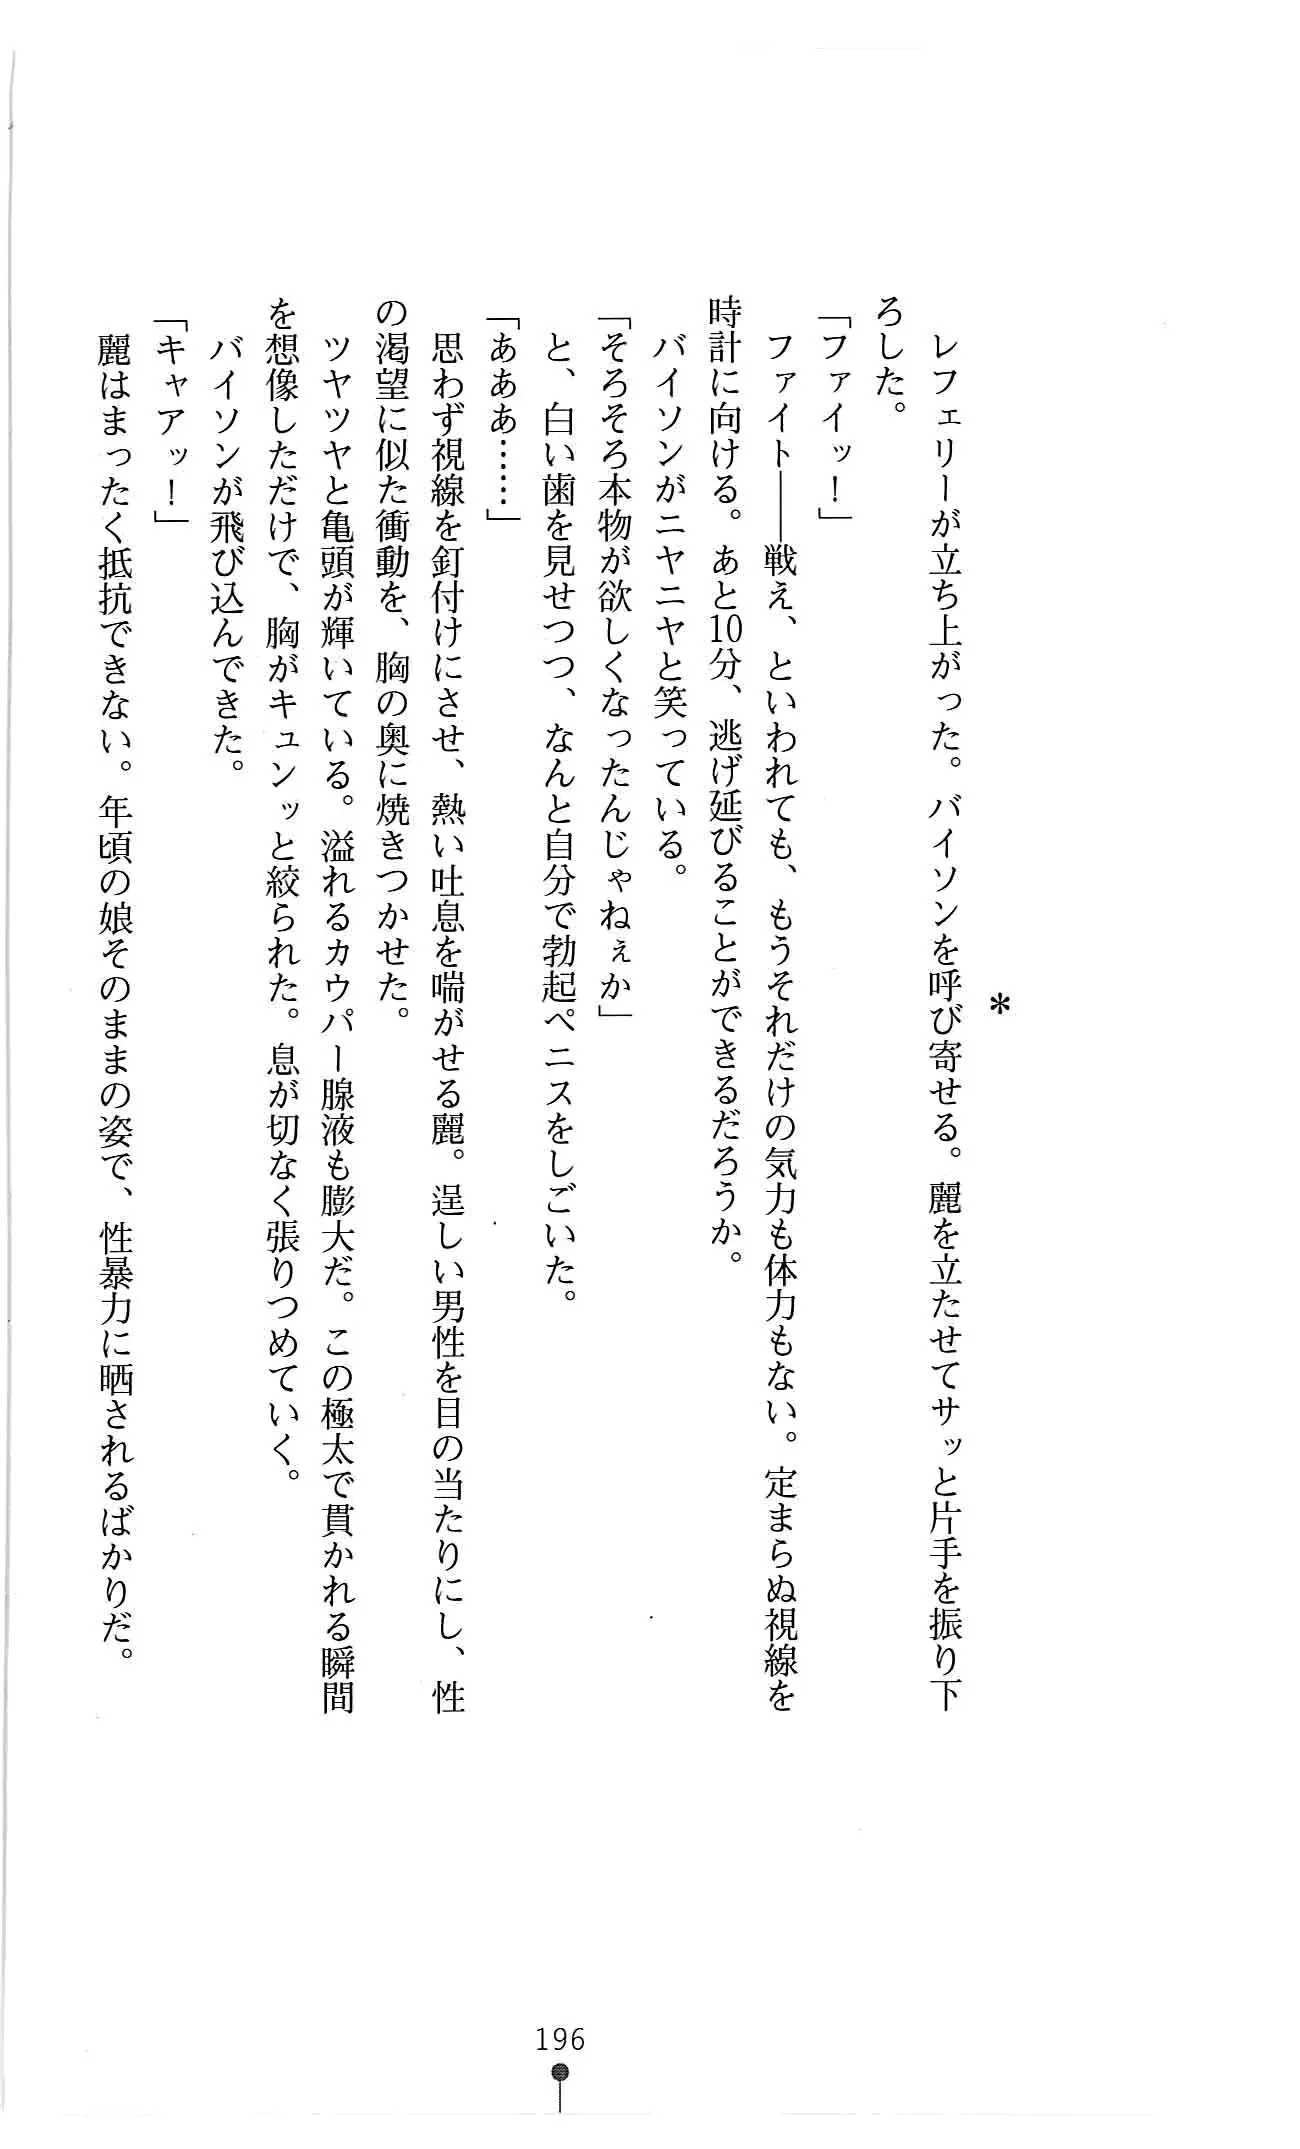 ＊
レフェリーが立ち上がった。バイソンを呼び寄せる。麗を立たせてサッと片手を振り下
ろした。
「ファイッ！」
ファイト――戦え、といわれても、もうそれだけの気力も体力もない。定まらぬ視線を
時計に向ける。あと10分、逃げ延びることができるだろうか。
バイソンがニヤニヤと笑っている。
「そろそろ本物が欲しくなったんじゃねぇか」
と、白い歯を見せつつ、なんと自分で勃起ペニスをしごいた。
「あああ……」
思わず視線を釘付けにさせ、熱い吐息を喘がせる麗。逞しい男性を目の当たりにし、性
の渇望に似た衝動を、胸の奥に焼きつかせた。
ツヤツヤと亀頭が輝いている。溢れるカウパー腺液も膨大だ。この極太で貫かれる瞬間
を想像しただけで、胸がキュンッと絞られた。息が切なく張りつめていく。
バイソンが飛び込んできた。
「キャアッ！」
麗はまったく抵抗できない。年頃の娘そのままの姿で、性暴力に晒されるばかりだ。
196